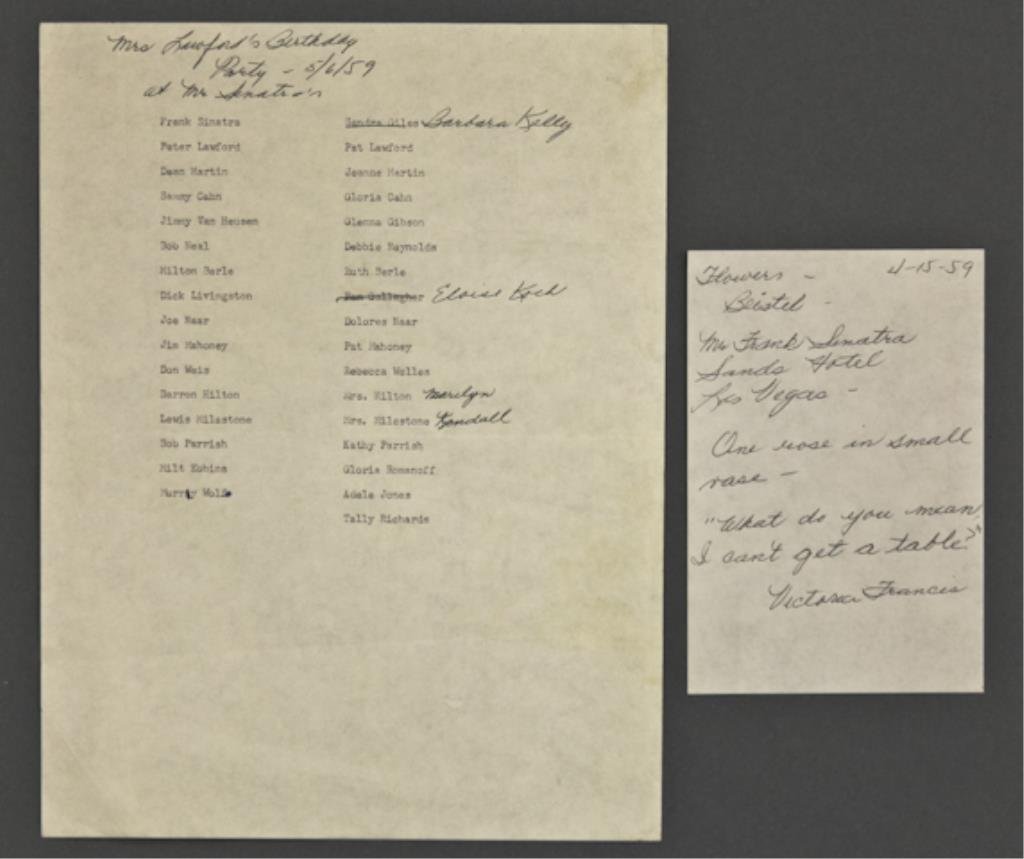 Mrs Lawford's Birthday
Party - 5/6/59
at Mr Sinatra's
Frank Sinatra Sandra Giles Barbara Kelly
Peter Lawford Pat Lawford
Dean Martin Jeanne Martin
Sammy Cahn Gloria Cahn
Jimmy Van Heusen Glenna Gibson
Bob Neal Debbie Reynolds
Milton Berle Ruth Berle
Dick Livingston Pam Gallagher Eloise Koch
Joe Naar Dolores Naar
Jim Mahoney Pat Mahoney
Don Weis Rebecca Welles
Barron Hilton Mrs. Hilton Marilyn
Lewis Milestone Mrs. Milestone Kendall
Bob Parrish Kathy Parrish
Milt Ebbins Gloria Romanoff
Murray Wolf Adele Jones
Tally Richards
Flowers - 4-15-59
Beistel -
Mr Frank Sinatra
Sands Hotel
Las Vegas -
One rose in small
vase -
"What do you mean
I can't get a table?"
Victoria Francis